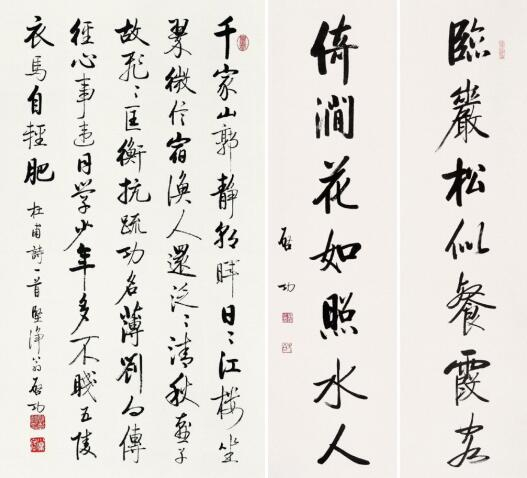 臨巖松似餐霞客
倚澗花如照水人
啟功
千家山郭靜朝暉日〻江樓坐
翠微信宿漁人還泛〻清秋燕子
故飛〻匡衡抗疏功名薄劉向傳
經心事違同學少年多不賤五陵
衣馬自輕肥 杜甫詩一首堅淨翁啟功